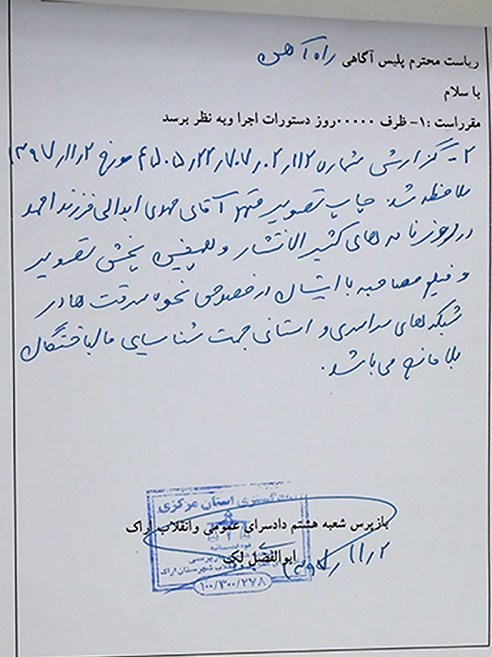 ریاست محترم پلیس آگاهی راه آهن
با سلام
مقرراست :۱- ظرف ۰۰۰۰۰روز دستورات اجرا وبه نظر برسد
۲- گزارش شماره مورخ ۱۳۹۷٫۱۱٫۲
ملاحظه شد. چاپ تصویر متهم آقای مهدی ابدالی فرزند احمد
در روزنامه های کثیرالانتشار و همچنین پخش تصویر
و فیلم مصاحبه با ایشان در خصوص نحوه سرقت ها در
شبکه های سراسری و استانی جهت شناسایی مالباختگان
بلامانع می باشد.
دادگستری استان مرکزی
بازپرس شعبه هشتم دادسرای عمومی وانقلاب اراک
ابوالفضل لک
شهرستان اراک
۱۰۰/۳۰۰/۲۷۸